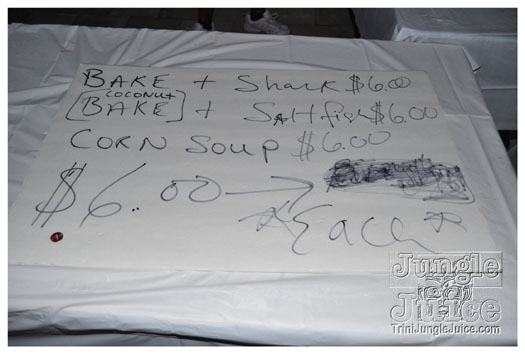 BAKE + Shark $6.00
COCONUT
[BAKE] + SAltfish $6.00
CORN SOUP $6.00
$6.00 →
*Each*
Jungle
Juice
TriniJungleJuice.com